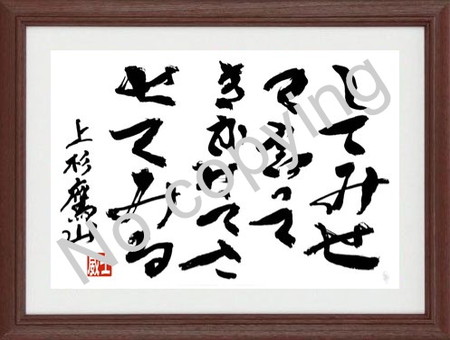 してみせ
て言って
きかせてさ
せてみる
上杉鷹山
No copying